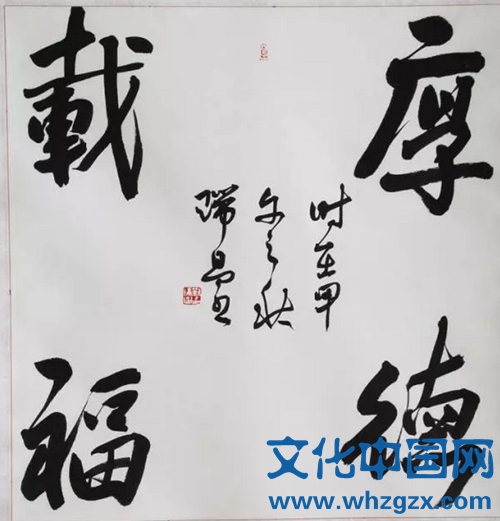 厚德
載福
时在甲
午之秋
瑞昌
文化中国网
www.whzgzx.com